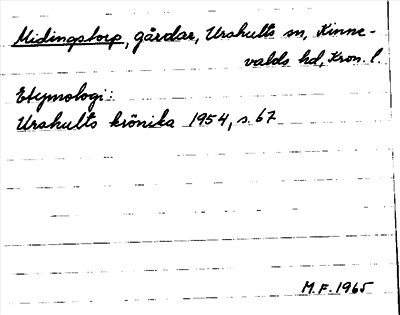 Midingstorp, gårdar, Urshults sn, Kinne-
valds hd, Kron. l.
Etymologi:
Urshults krönika 1954, s. 67
M.F. 1965